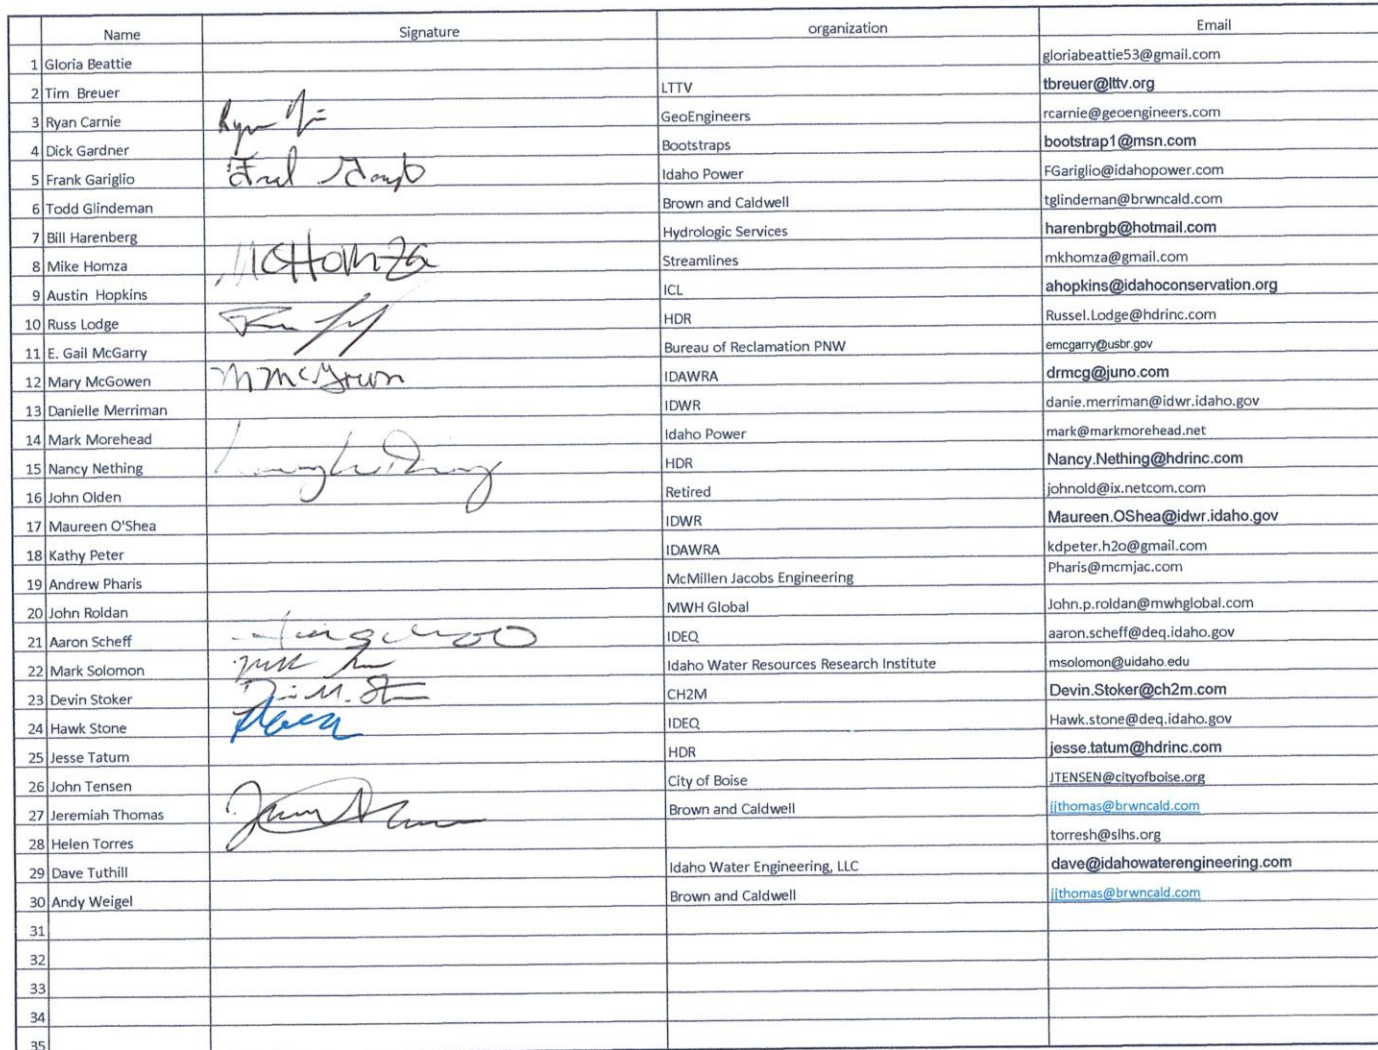 Name Signature organization Email
1 Gloria Beattie gloriabeattie53@gmail.com
2 Tim Breuer LTTV tbreuer@lttv.org
3 Ryan Carnie GeoEngineers rcarnie@geoengineers.com
4 Dick Gardner Bootstraps bootstrap1@msn.com
5 Frank Gariglio Idaho Power FGariglio@idahopower.com
6 Todd Glindeman Brown and Caldwell tglindeman@brwncald.com
7 Bill Harenberg Hydrologic Services harenbrgb@hotmail.com
8 Mike Homza MCHomza Streamlines mkhomza@gmail.com
9 Austin Hopkins ICL ahopkins@idahoconservation.org
10 Russ Lodge HDR Russel.Lodge@hdrinc.com
11 E. Gail McGarry Bureau of Reclamation PNW emcgarry@usbr.gov
12 Mary McGowen M McGown IDAWRA drmcg@juno.com
13 Danielle Merriman IDWR danie.merriman@idwr.idaho.gov
14 Mark Morehead Idaho Power mark@markmorehead.net
15 Nancy Nething HDR Nancy.Nething@hdrinc.com
16 John Olden Retired johnold@ix.netcom.com
17 Maureen O'Shea IDWR Maureen.OShea@idwr.idaho.gov
18 Kathy Peter IDAWRA kdpeter.h2o@gmail.com
19 Andrew Pharis McMillen Jacobs Engineering Pharis@mcmjac.com
20 John Roldan MWH Global John.p.roldan@mwhglobal.com
21 Aaron Scheff IDEQ aaron.scheff@deq.idaho.gov
22 Mark Solomon Idaho Water Resources Research Institute msolomon@uidaho.edu
23 Devin Stoker CH2M Devin.Stoker@ch2m.com
24 Hawk Stone IDEQ Hawk.stone@deq.idaho.gov
25 Jesse Tatum HDR jesse.tatum@hdrinc.com
26 John Tensen City of Boise JTENSEN@cityofboise.org
27 Jeremiah Thomas Brown and Caldwell jjthomas@brwncald.com
28 Helen Torres torresh@slhs.org
29 Dave Tuthill Idaho Water Engineering, LLC dave@idahowaterengineering.com
30 Andy Weigel Brown and Caldwell jjthomas@brwncald.com
31
32
33
34
35